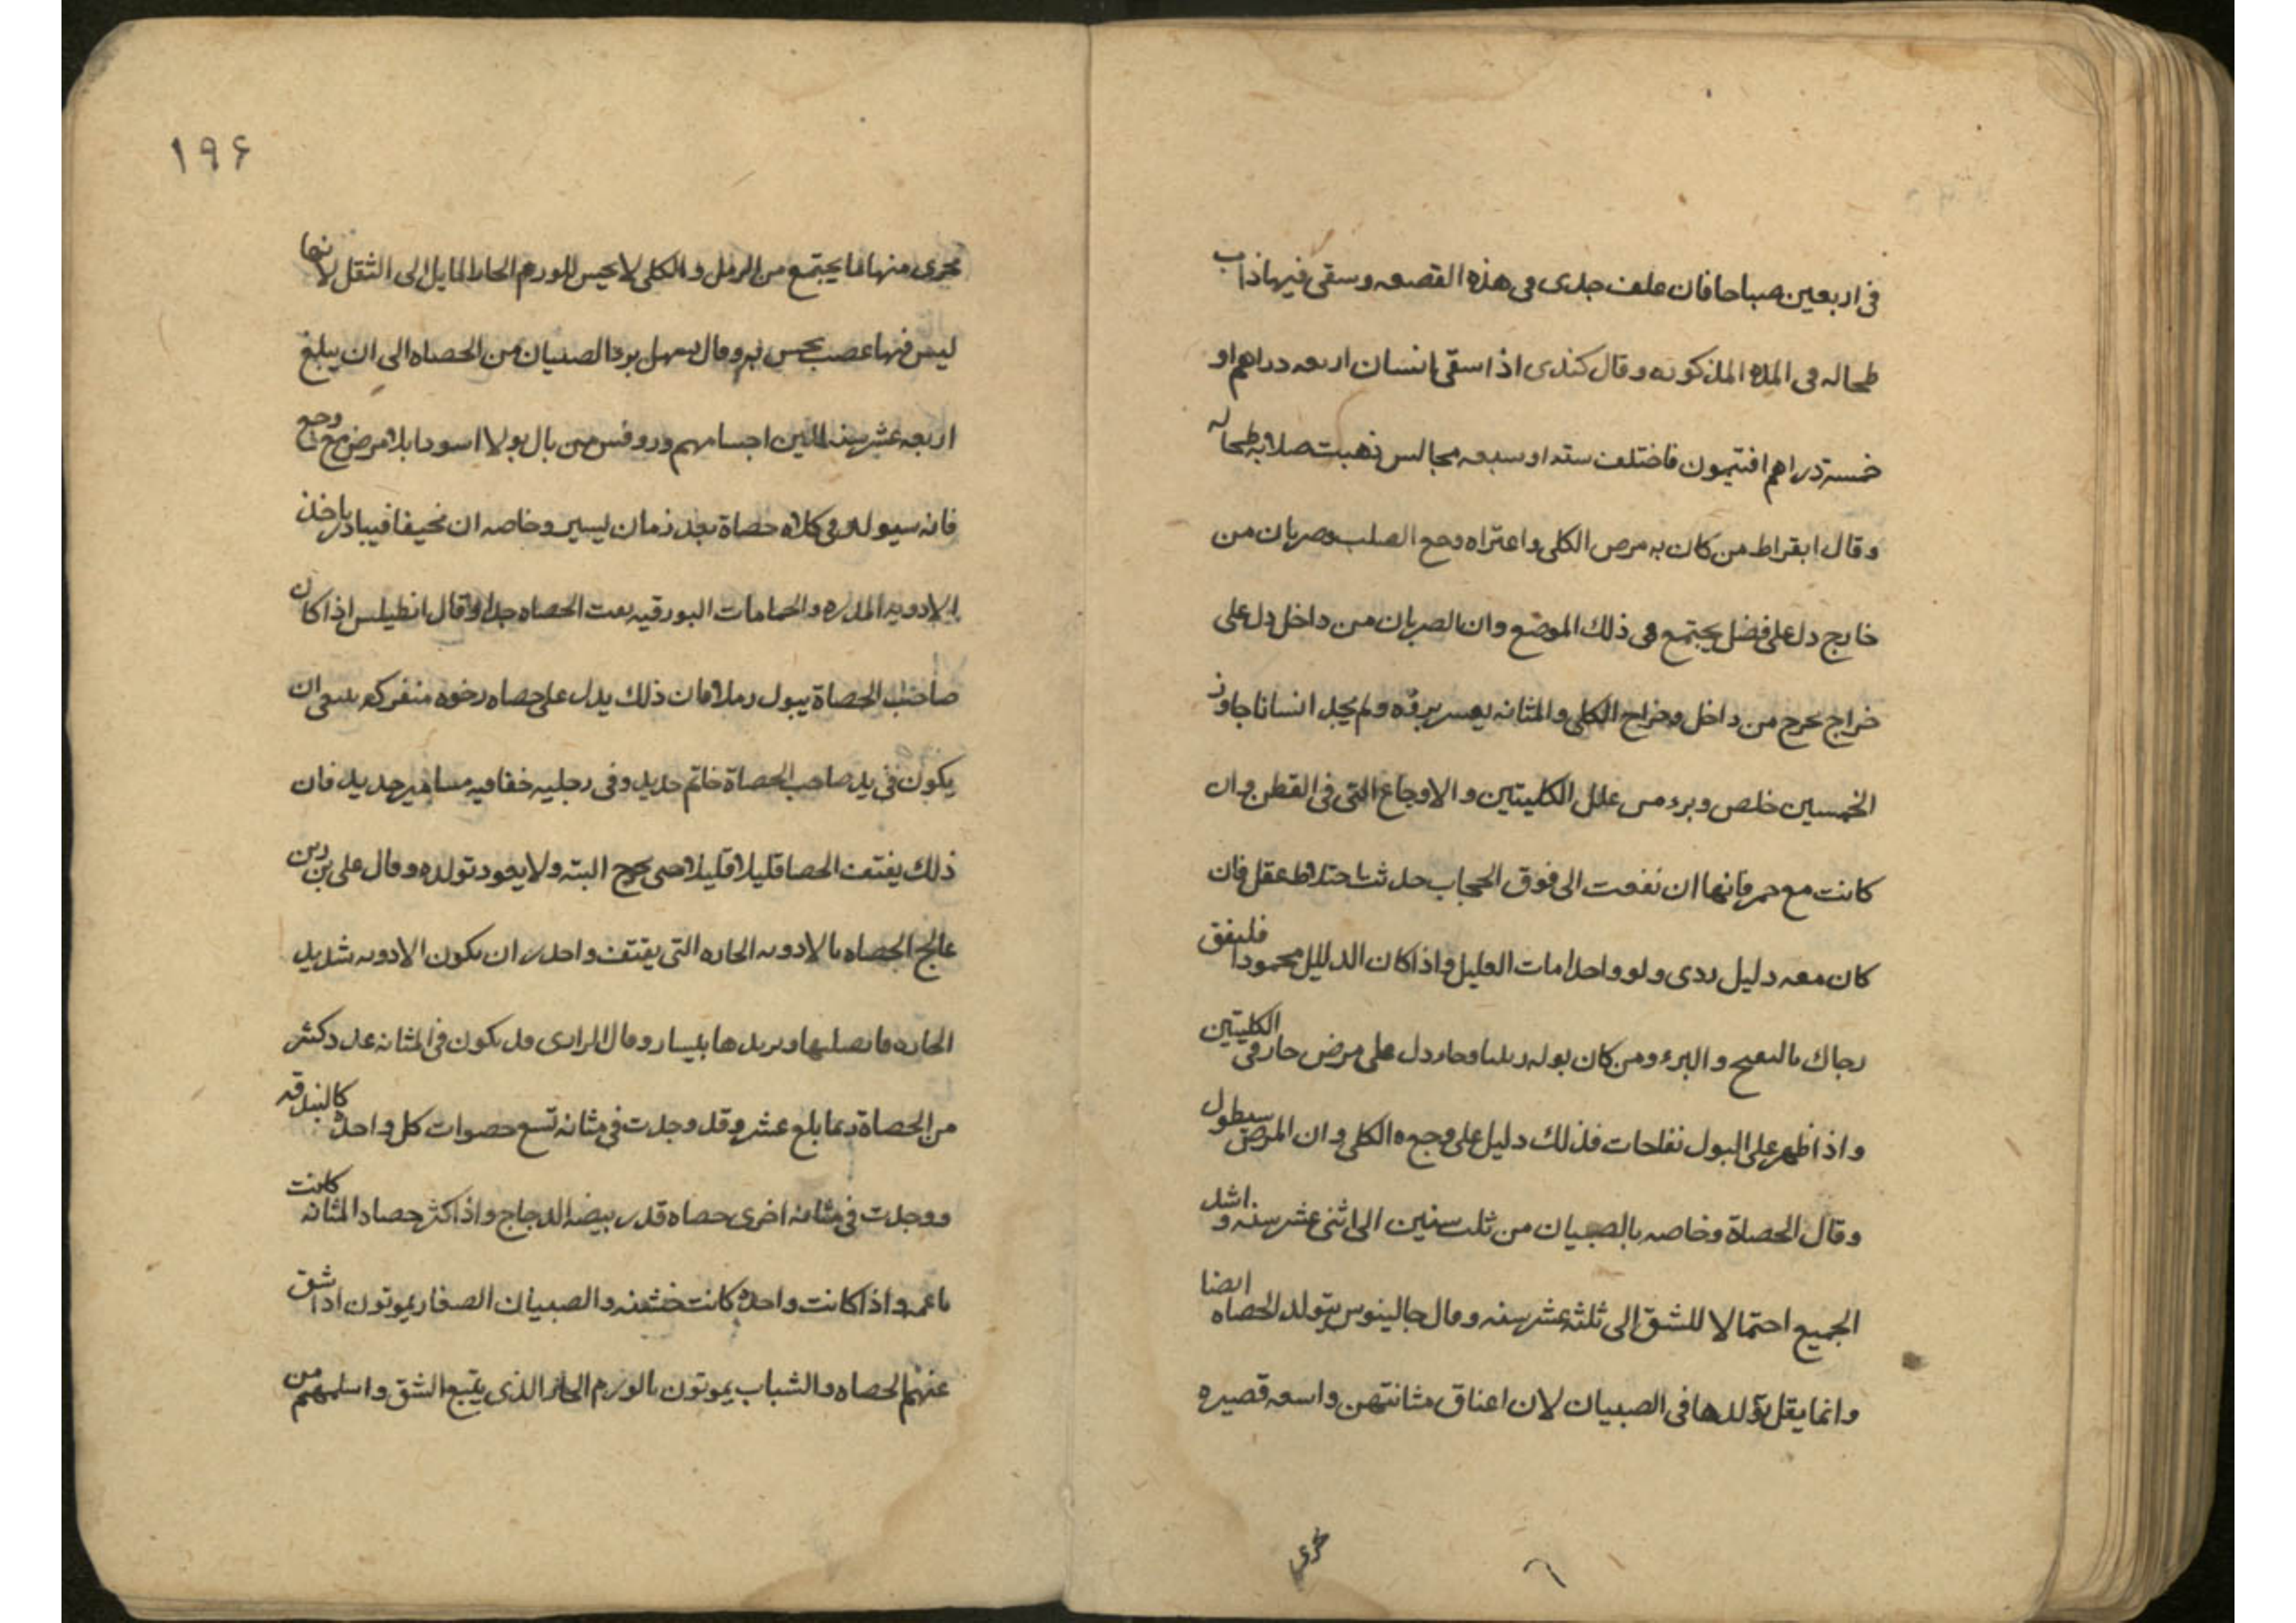 في اربعين صباحا فان علف جدى فى هذه القصعه وسقى فيها ذاب
طحاله فى المده المذكوره وقال كندى اذا سقى انسان اربعه دراهم او
خمسة دراهم افتيمون فاختلف سته او سبعه مجالس ذهبت صلابه طحاله
وقال ابقراط من كان به مرض الكلى واعتراه وجع الصلب وضربان من
خارج دل على فضل يجتمع فى ذلك الموضع وان الضربان من داخل دل على
خراج يخرج من داخل وخراج الكلى والمثانه يعسر بروه ولم يجد انسانا جاوز
الخمسين خلص وبرء من علل الكليتين والاوجاع التى فى القطن وان
كانت مع حمى فانها ان نفدت الى فوق الحجاب حدثت اختلاط عقل فان
كان معه دليل ردى ولو واحدا مات العليل واذا كان الدليل محمودا فليفق
رجاك والبرء ومن كان بوله وحار دل على مرض حار فى الكليتين
واذا ظهر على البول نفاخات فذلك دليل على وجع الكلى وان المرض سيطول
وقال الحصاة وخاصه بالصبيان من ثلث سنين الى اثنى عشر سنه و اشد
الجميع احتمالا للشق الى ثلثه عشر سنه وقال جالينوس يتولد الحصاه ايضا
وانما يقل تولدها فى الصبيان لان اعناق مثانتهن واسعه قصيره
١٩۶
مجرى منها ما يجتمع من الرمل والكلى لا يحس للورم الحار المايل الى الثقل لانها
ليس فيها عصب يحس به وقال يسهل برء الصبيان من الحصاه الى ان يبلغ
اربعه عشر سنه للين اجسامهم وروفس من بال بولا اسود بلا مرض مع وجع
فانه سيولد فى كلاه حصاة بعد زمان يسير وخاصه ان نحيفا فيبادر باخذ
الادويه المدره والحمامات البورقيه يفت الحصاه جدا وقال انطيلس اذا كان
صاحب الحصاة يبول رملا فان ذلك يدل على حصاه رخوه منفركه ينبغى ان
يكون فى يد صاحب الحصاة خاتم حديد وفى رجليه خفا فيه مسامير حديد فان
ذلك يفتت الحصا قليلا قليلا حتى يخرج البته ولا يعود تولده وقال على بن ربن
عالج الحصاه بالادويه الحاره التى يفتت واحذر ان يكون الادويه شديد
الحاره فانه يصلبها ويزيدها وقال الرازى قد يكون فى المثانه عدد كثير
من الحصاة ربما بلغ عشر وقد وجدت فى مثانه تسع حصوات كل واحدة كالبندقه
ووجدت فى مثانه اخرى حصاه قدر بيضه الدجاج واذا كثر حصاد المثانه كانت
ناعمه واذا كانت واحده كانت خشنه والصبيان الصغار يموتون اذا شق
عنهم الحصاه والشباب يموتون بالورم الحار الذى يتبع الشق واسلمهم من
مجرى